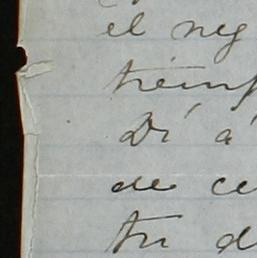 el neg
tiemp
Di á
de ce
tu d